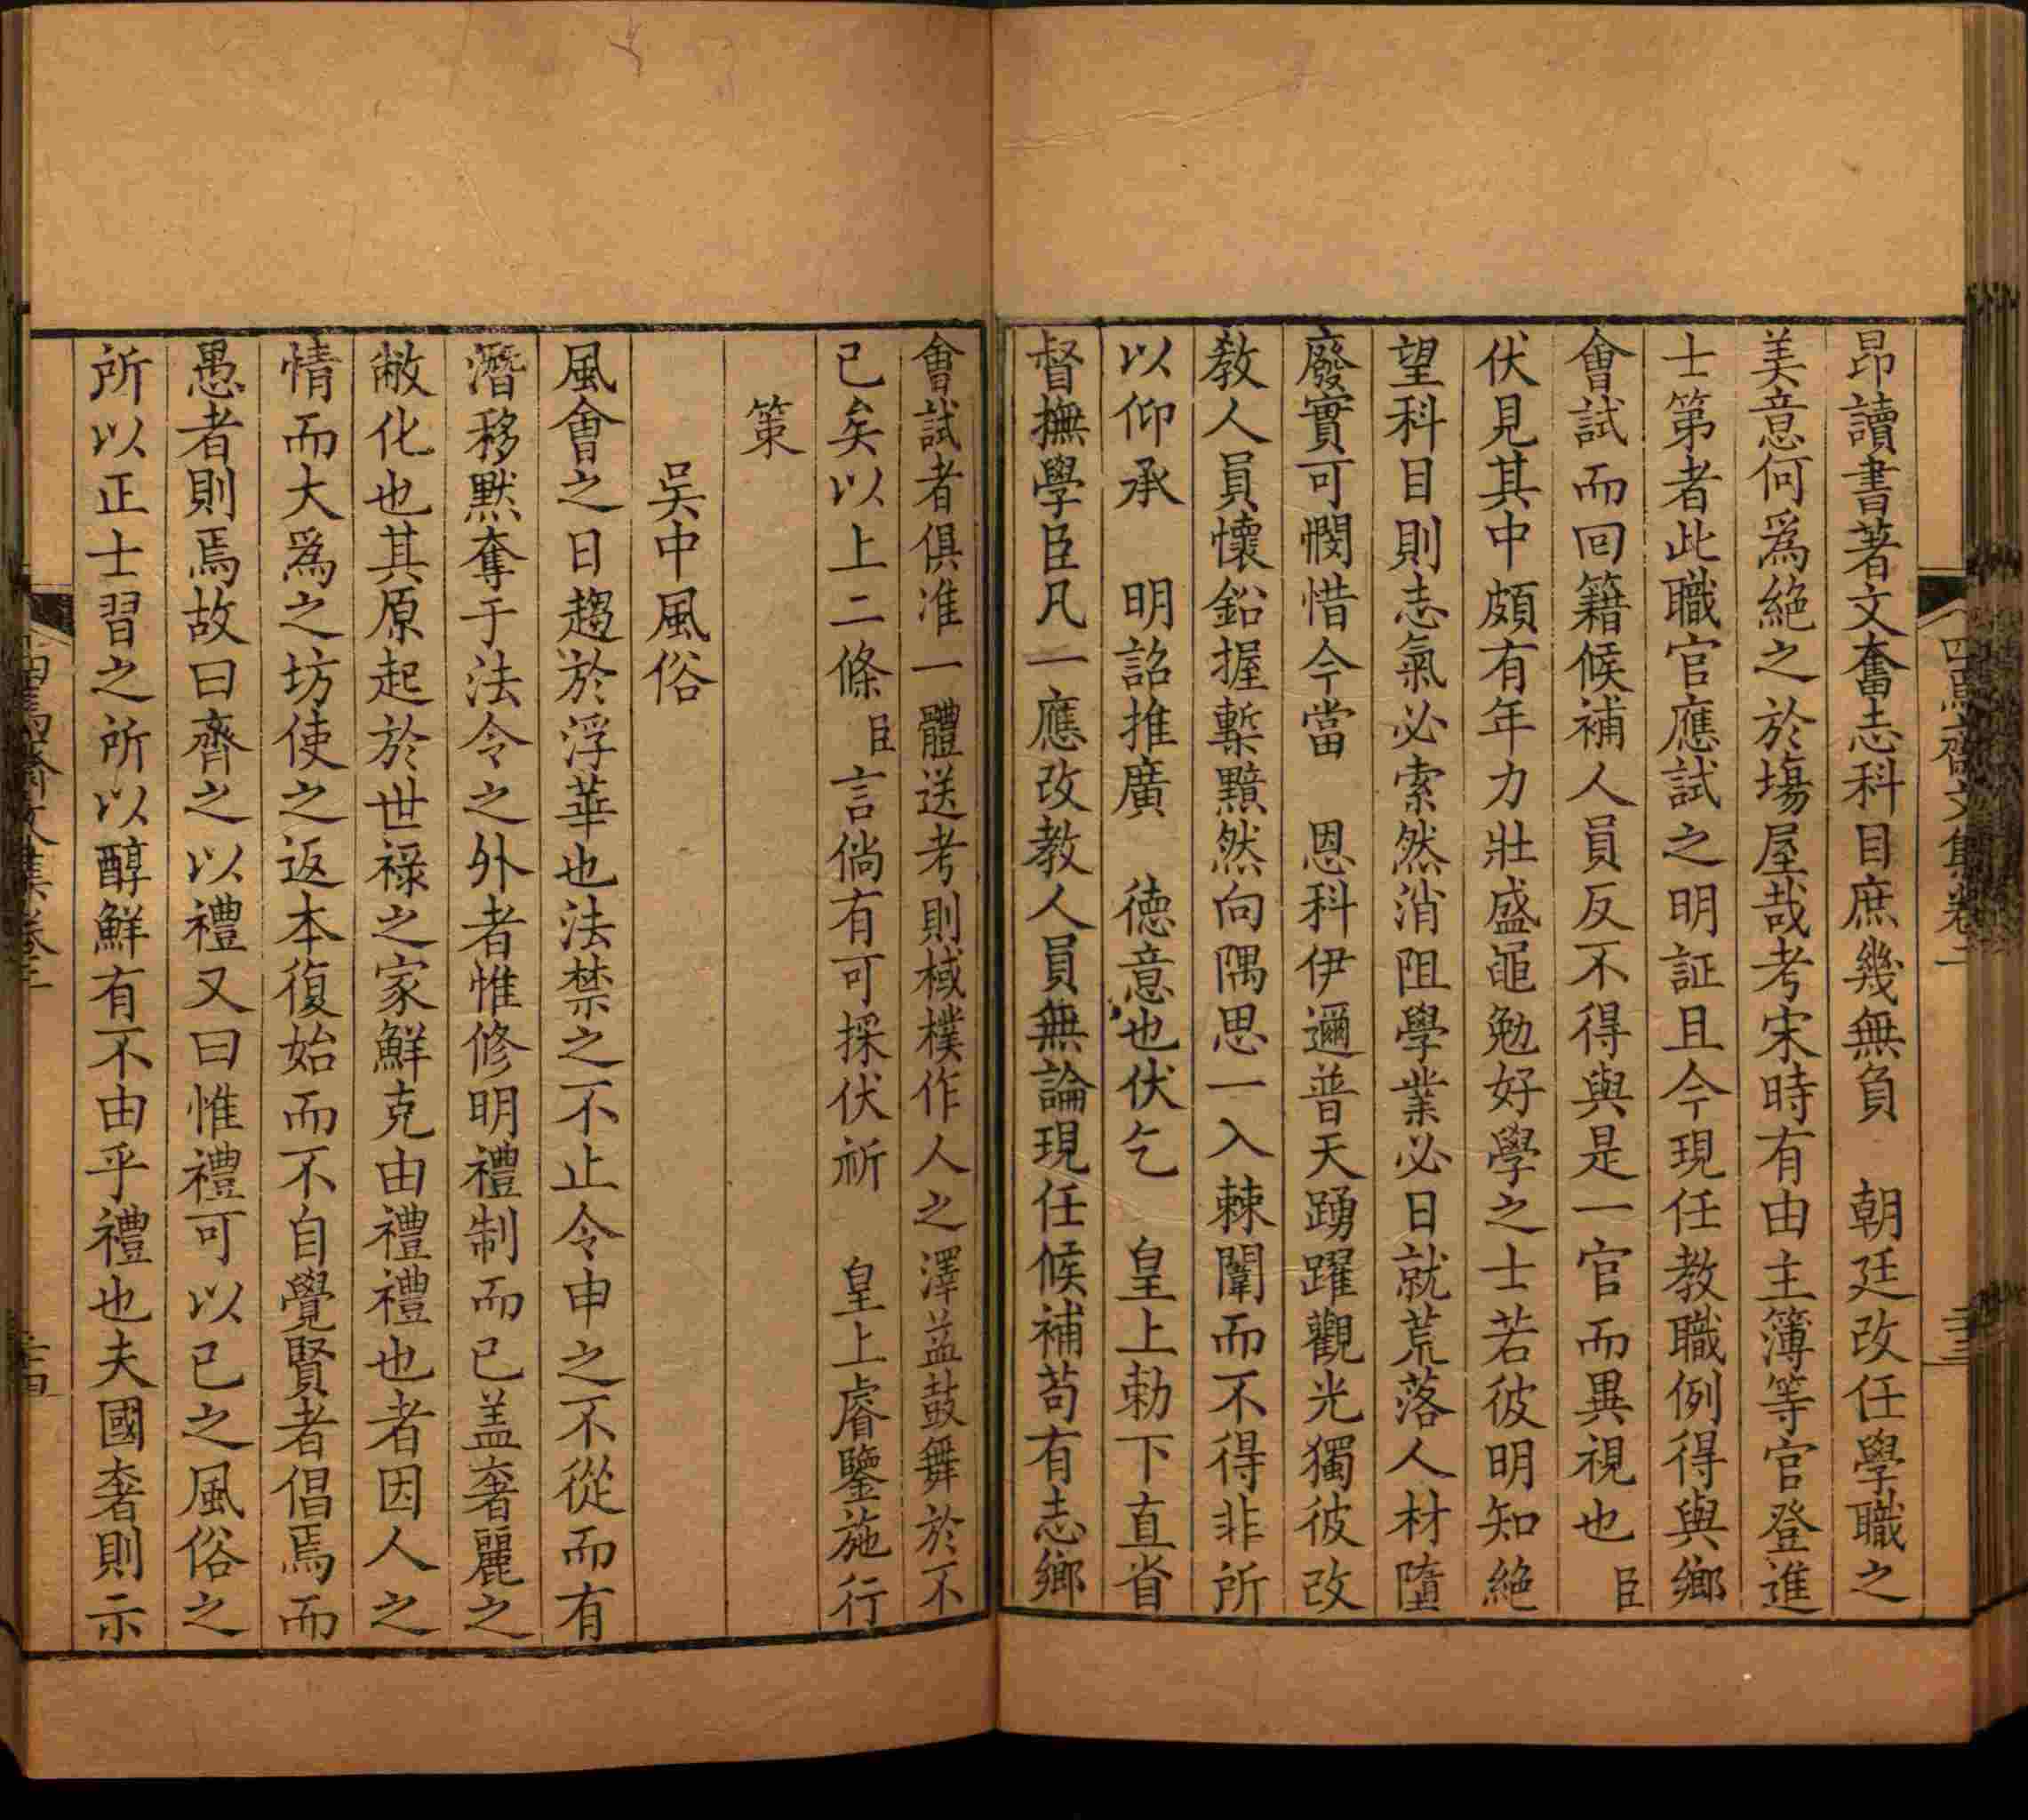 昂讀書著文奮志科目庶幾無負　朝廷改任學職之
美意何爲絶之於塲屋哉考宋時有由主簿等官登進
士第者此職官應試之明証且今現任教職例得與鄉
會試而回籍候補人員反不得與是一官而異視也臣
伏見其中頗有年力壯盛黽勉好學之士若彼明知絶
望科目則志氣必索然消阻學業必日就荒落人材墮
廢實可憫惜今當　恩科伊邇普天踴躍觀光獨彼改
教人員懷鉛握槧黯然向隅思一入棘闈而不得非所
以仰承　明詔推廣　德意也伏乞　皇上勅下直省
督撫學臣凡一應改教人員無論現任候補苟有志鄉
會試者俱准一體送考則棫樸作人之澤益鼓舞於不
已矣以上二條臣言倘有可採伏祈　皇上睿鑒施行
策
吳中風俗
風會之日趨於浮華也法禁之不止令申之不從而有
潛移默奪于法令之外者惟修明禮制而已盖奢麗之
敝化也其原起於世祿之家鮮克由禮禮也者因人之
情而大爲之坊使之返本復始而不自覺賢者倡焉而
愚者則焉故曰齊之以禮又曰惟禮可以已之風俗之
所以正士習之所以醇鮮有不由乎禮也夫國奢則示